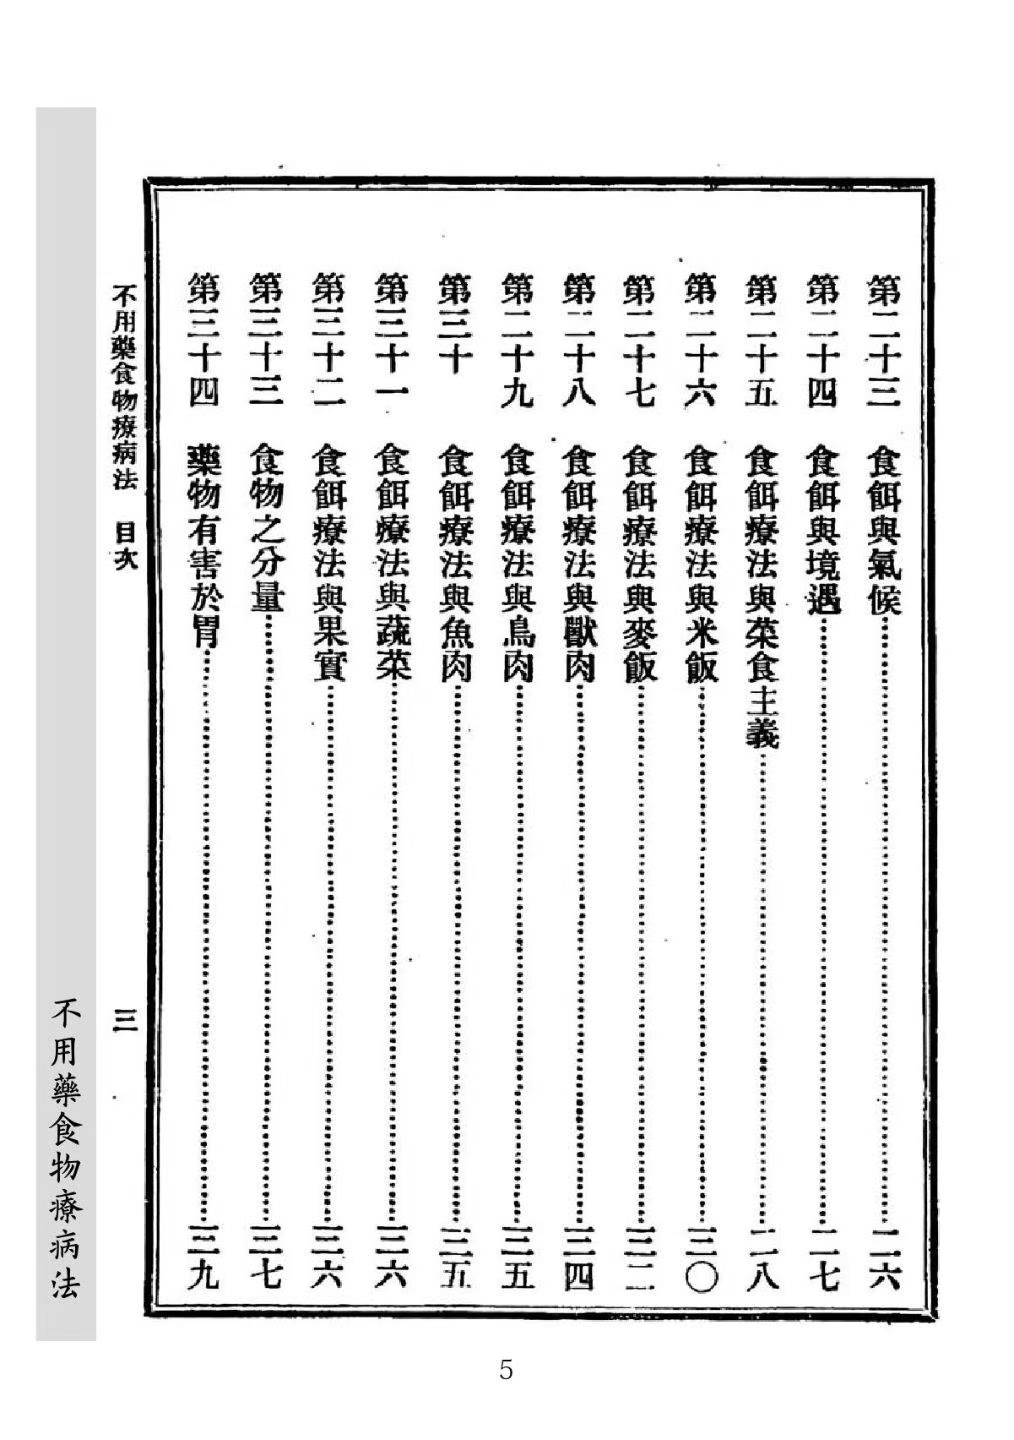 第二十三 食餌與氣候 二六
第二十四 食餌與境遇 二七
第二十五 食餌療法與菜食主義 二八
第二十六 食餌療法與米飯 三〇
第二十七 食餌療法與麥飯 三二
第二十八 食餌療法與獸肉 三四
第二十九 食餌療法與鳥肉 三五
第三十 食餌療法與魚肉 三五
第三十一 食餌療法與蔬菜 三六
第三十二 食餌療法與果實 三六
第三十三 食物之分量 三七
第三十四 藥物有害於胃 三九
不用藥食物療病法 目次 三
不用藥食物療病法
5